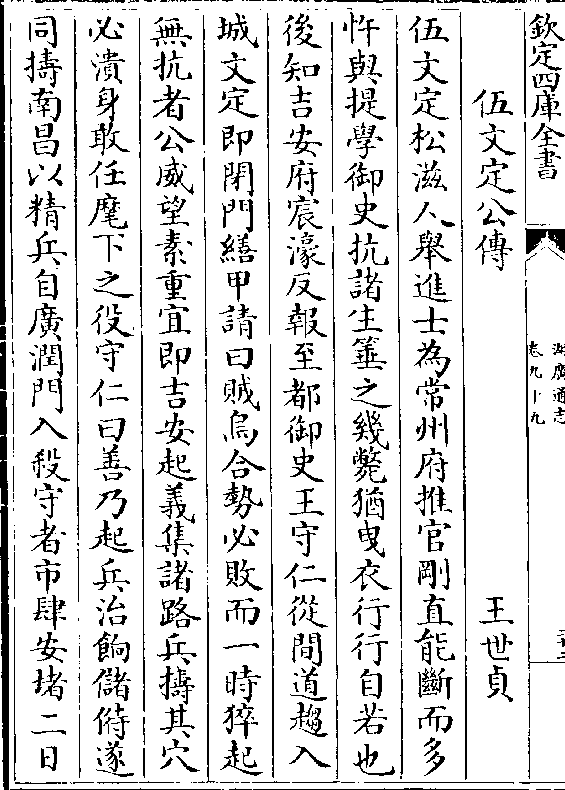 欽定四庫全書
湖廣通志
卷九十九
伍文定公傳 王世貞
伍文定松滋人舉進士為常州府推官剛直能斷而多
忤與提學御史抗諸生箠之幾斃猶曳衣行行自若也
後知吉安府宸濠反報至都御史王守仁從間道趨入
城文定即閉門繕甲請曰賊烏合勢必敗而一時猝起
無抗者公威望素重宜即吉安起義集諸路兵擣其穴
必潰身敢任麾下之役守仁曰善乃起兵治餉儲偫遂
同擣南昌以精兵自廣潤門入殺守者市肆安堵二日